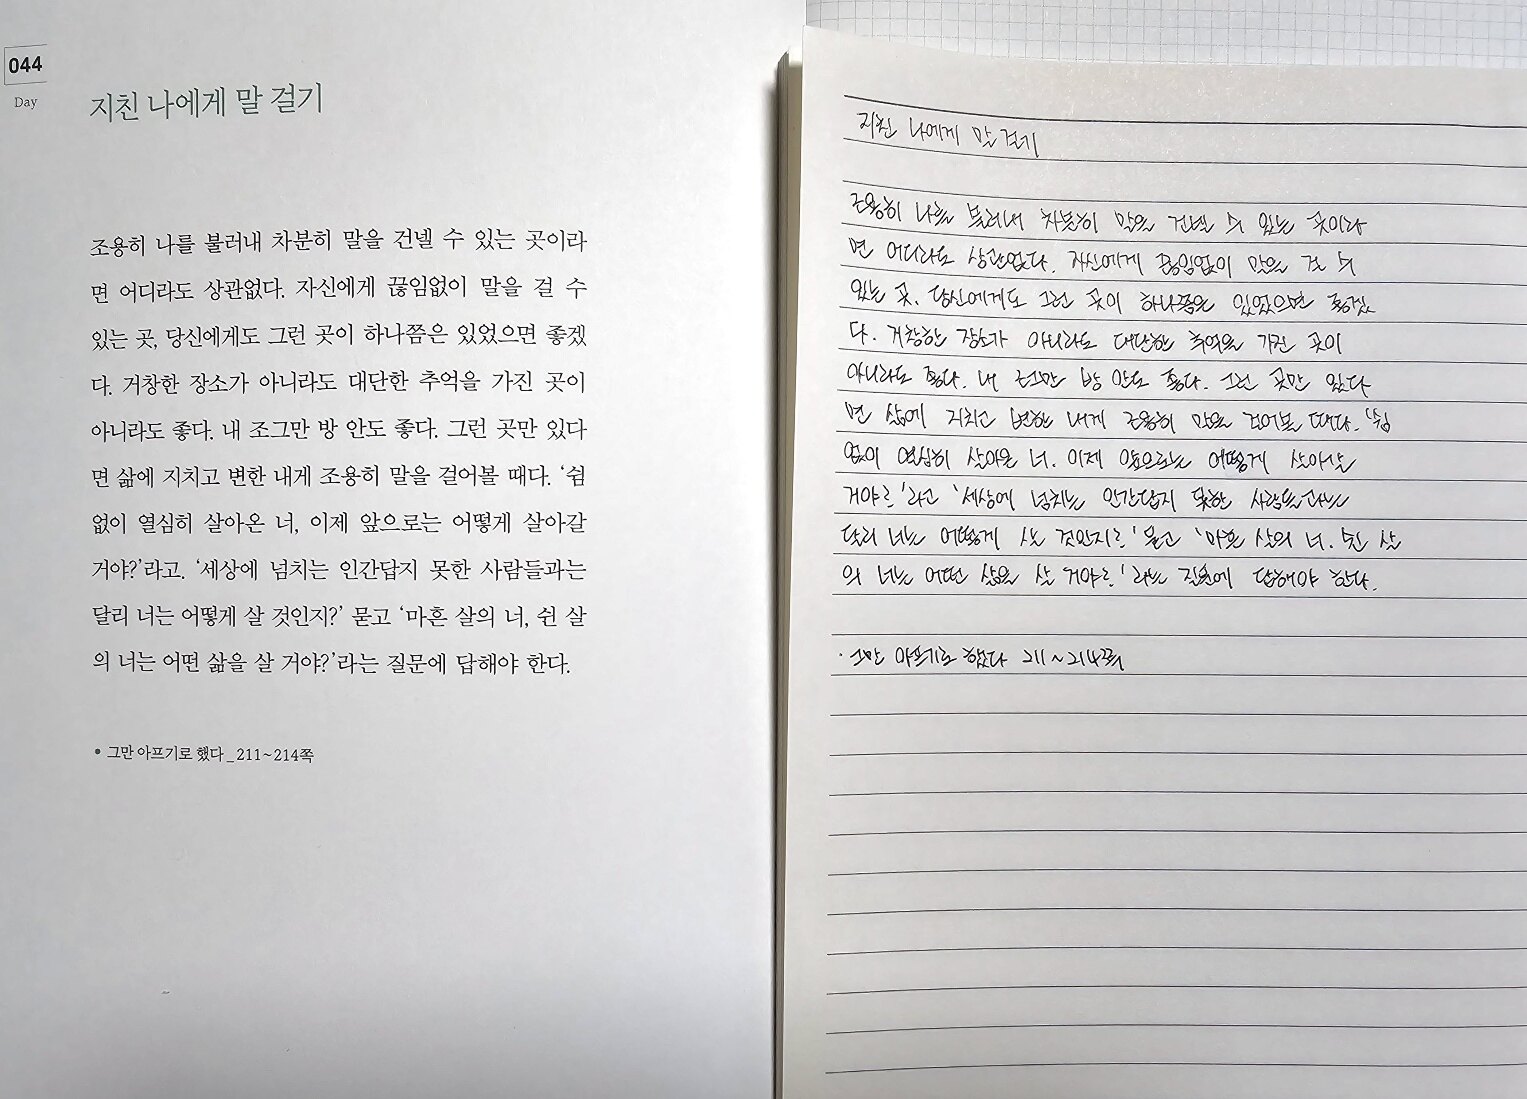 044
Day
지친 나에게 말 걸기
조용히 나를 불러내 차분히 말을 건넬 수 있는 곳이라
면 어디라도 상관없다. 자신에게 끊임없이 말을 걸 수
있는 곳, 당신에게도 그런 곳이 하나쯤은 있었으면 좋겠
다. 거창한 장소가 아니라도 대단한 추억을 가진 곳이
아니라도 좋다. 내 조그만 방 안도 좋다. 그런 곳만 있다
면 삶에 지치고 변한 내게 조용히 말을 걸어볼 때다. ‘쉼
없이 열심히 살아온 너, 이제 앞으로는 어떻게 살아갈
거야?’라고. ‘세상에 넘치는 인간답지 못한 사람들과는
달리 너는 어떻게 살 것인지?’ 묻고 ‘마흔 살의 너, 쉰 살
의 너는 어떤 삶을 살 거야?’라는 질문에 답해야 한다.
• 그만 아프기로 했다_211~214쪽
지친 나에게 말 걸기
조용히 나를 불러내 차분히 말을 건넬 수 있는 곳이라
면 어디라도 상관없다. 자신에게 끊임없이 말을 걸 수
있는 곳. 당신에게도 그런 곳이 하나쯤은 있었으면 좋겠
다. 거창한 장소가 아니라도 대단한 추억을 가진 곳이
아니라도 좋다. 내 조그만 방 안도 좋다. 그런 곳만 있다
면 삶에 지치고 변한 내게 조용히 말을 걸어볼 때다. ‘쉼
없이 열심히 살아온 너. 이제 앞으로는 어떻게 살아갈
거야?’라고 ‘세상에 넘치는 인간답지 못한 사람들과는
달리 너는 어떻게 사는 것인지?’ 묻고 ‘마흔 살의 너. 쉰 살
의 너는 어떤 삶을 살 거야?’라는 질문에 답해야 한다.
· 그만 아프기로 했다 211~214쪽